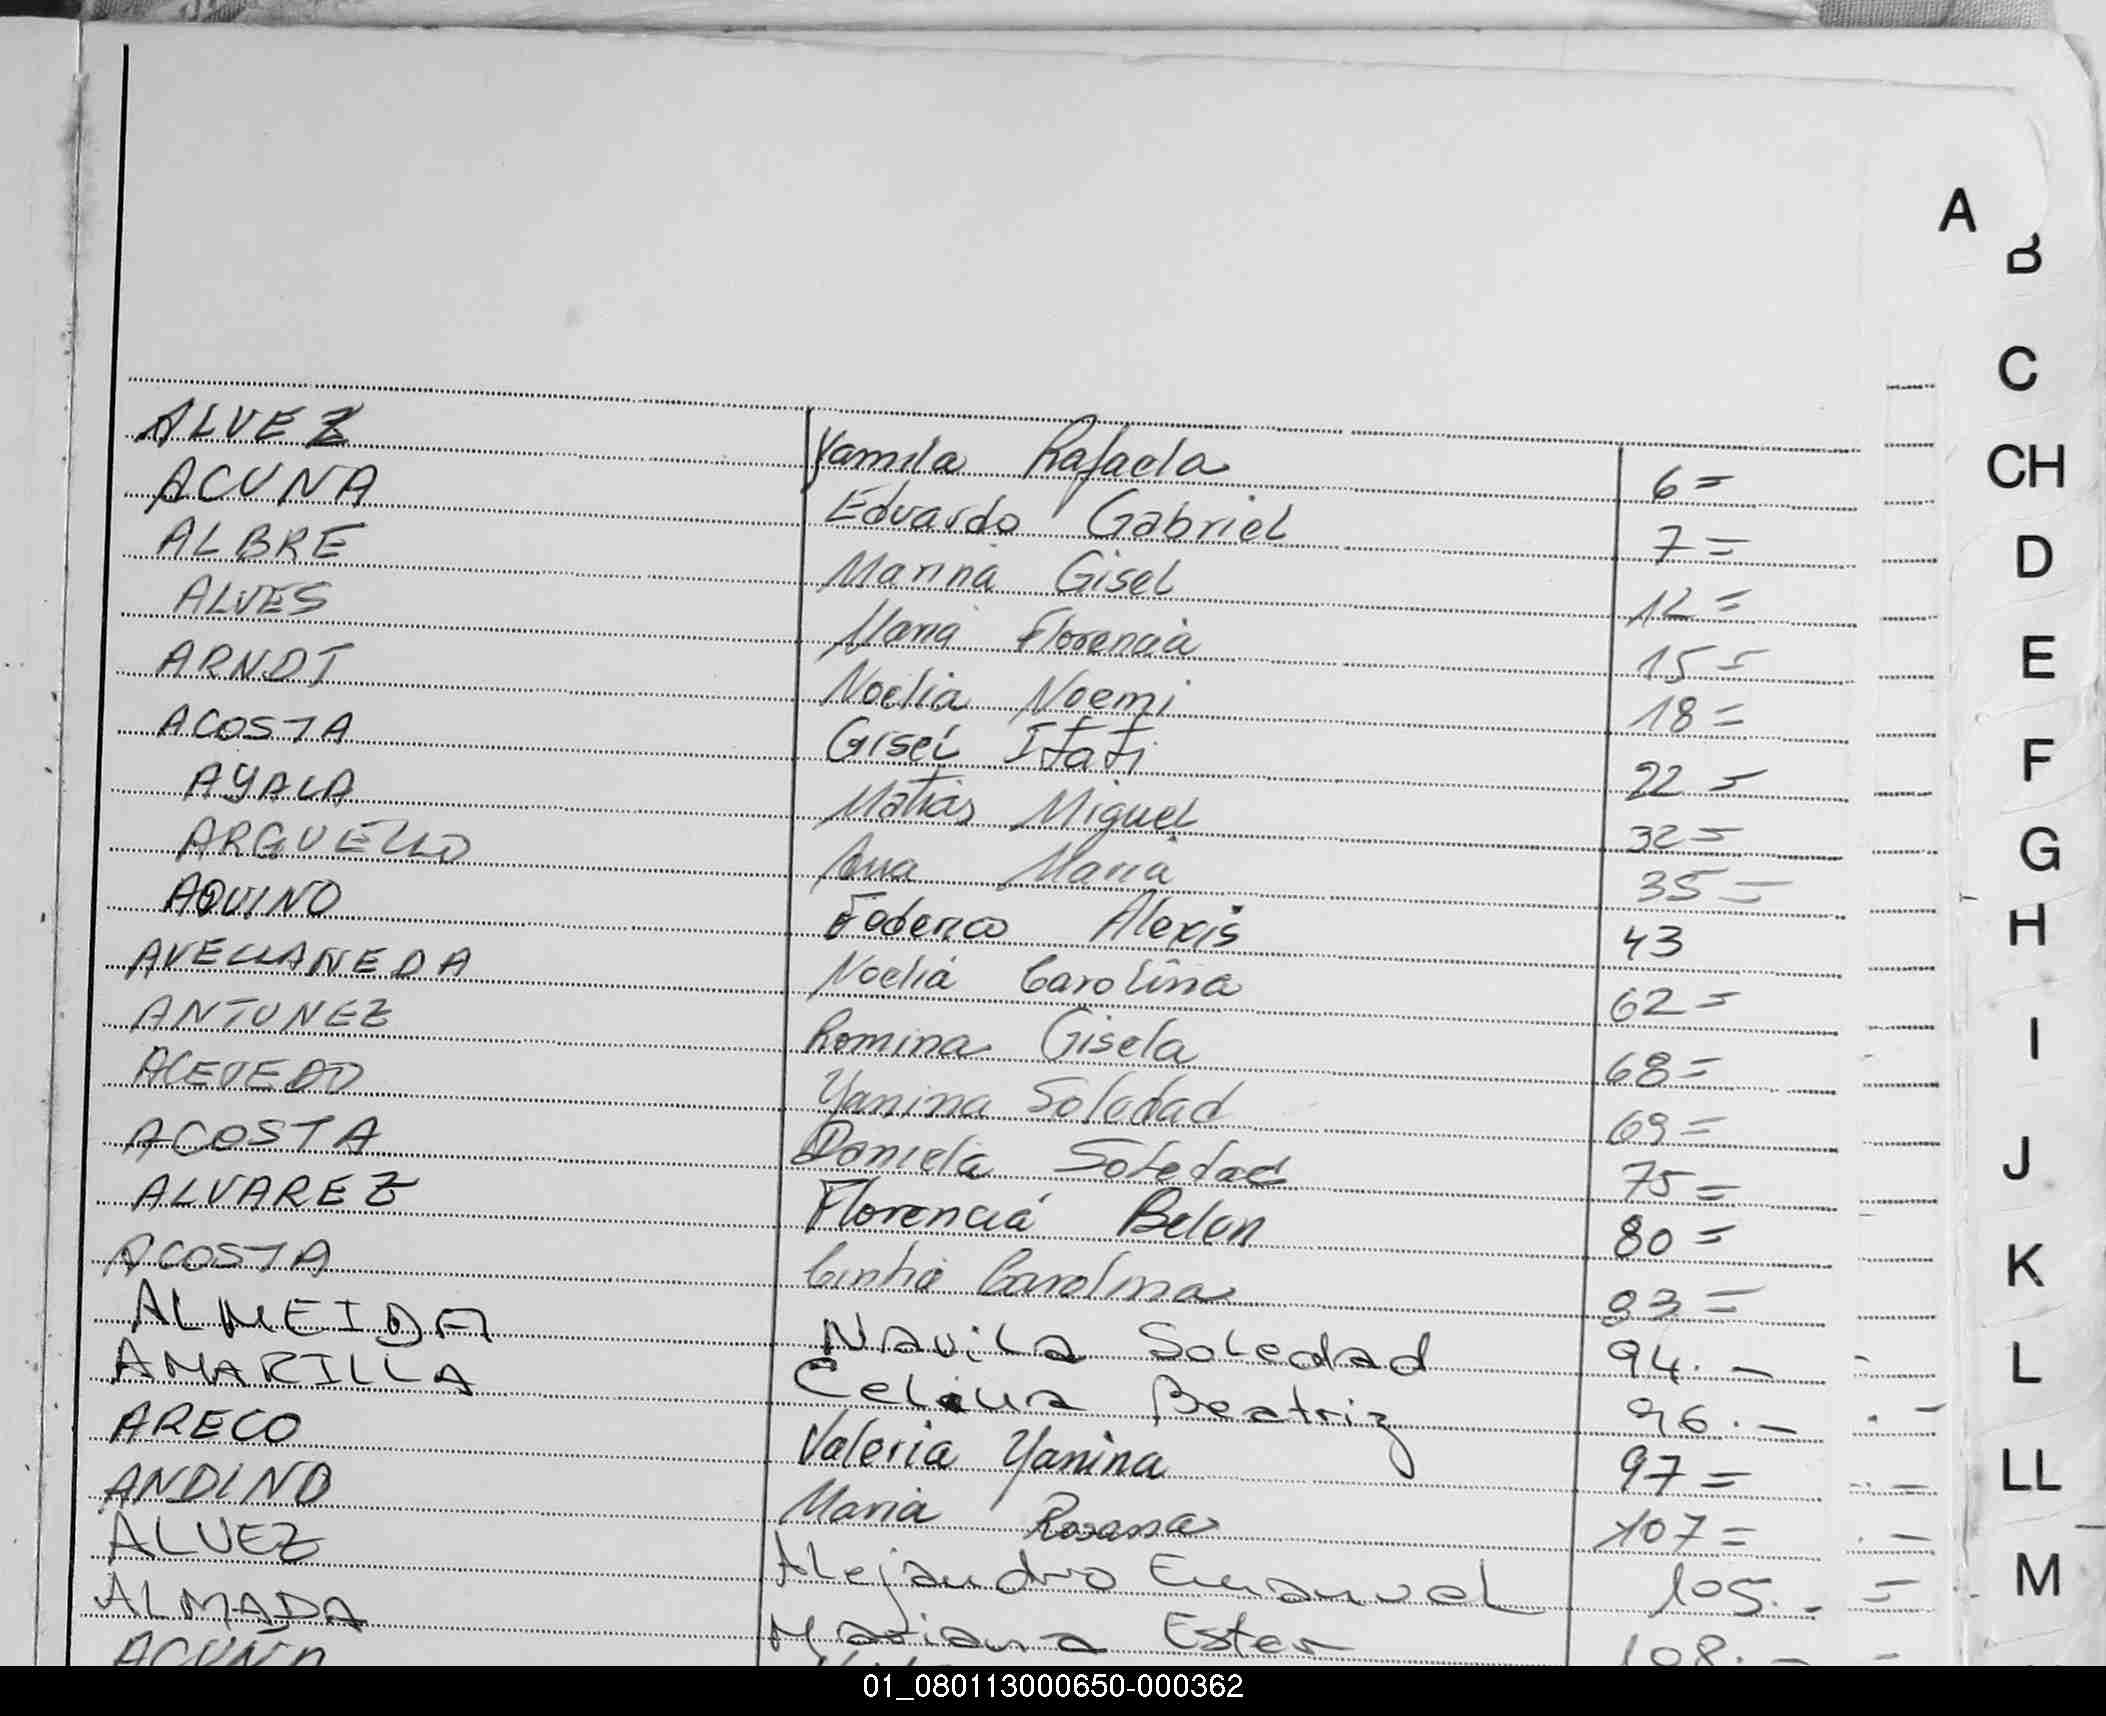 A
B
C
CH
D
E
F
G
H
I
J
K
L
LL
M
ALVEZ Yamila Rafaela 6=
ACUNA Eduardo Gabriel 7=
ALBRE Marina Gisel 12=
ALVES Maria Florencia 15=
ARNDT Noelia Noemi 18=
ACOSTA Gisel Itati 22=
AYALA Matias Miguel 32=
ARGUELLO Ana Maria 35=
AQUINO Federico Alexis 43
AVELLANEDA Noelia Carolina 62=
ANTUNEZ Romina Gisela 68=
ACEVEDO Yanina Soledad 69=
ACOSTA Daniela Soledad 75=
ALVAREZ Florencia Belen 80=
ACOSTA Cintia Carolina 93=
ALMEIDA Navila Soledad 94.-
AMARILLA Celina Beatriz 96.-
ARECO Valeria Yanina 97=
ANDINO Maria Rosana 107=
ALVEZ Alejandro Emanuel 105.-
ALMADA Mariana Ester 108.-
ACUÑA
01_080113000650-000362